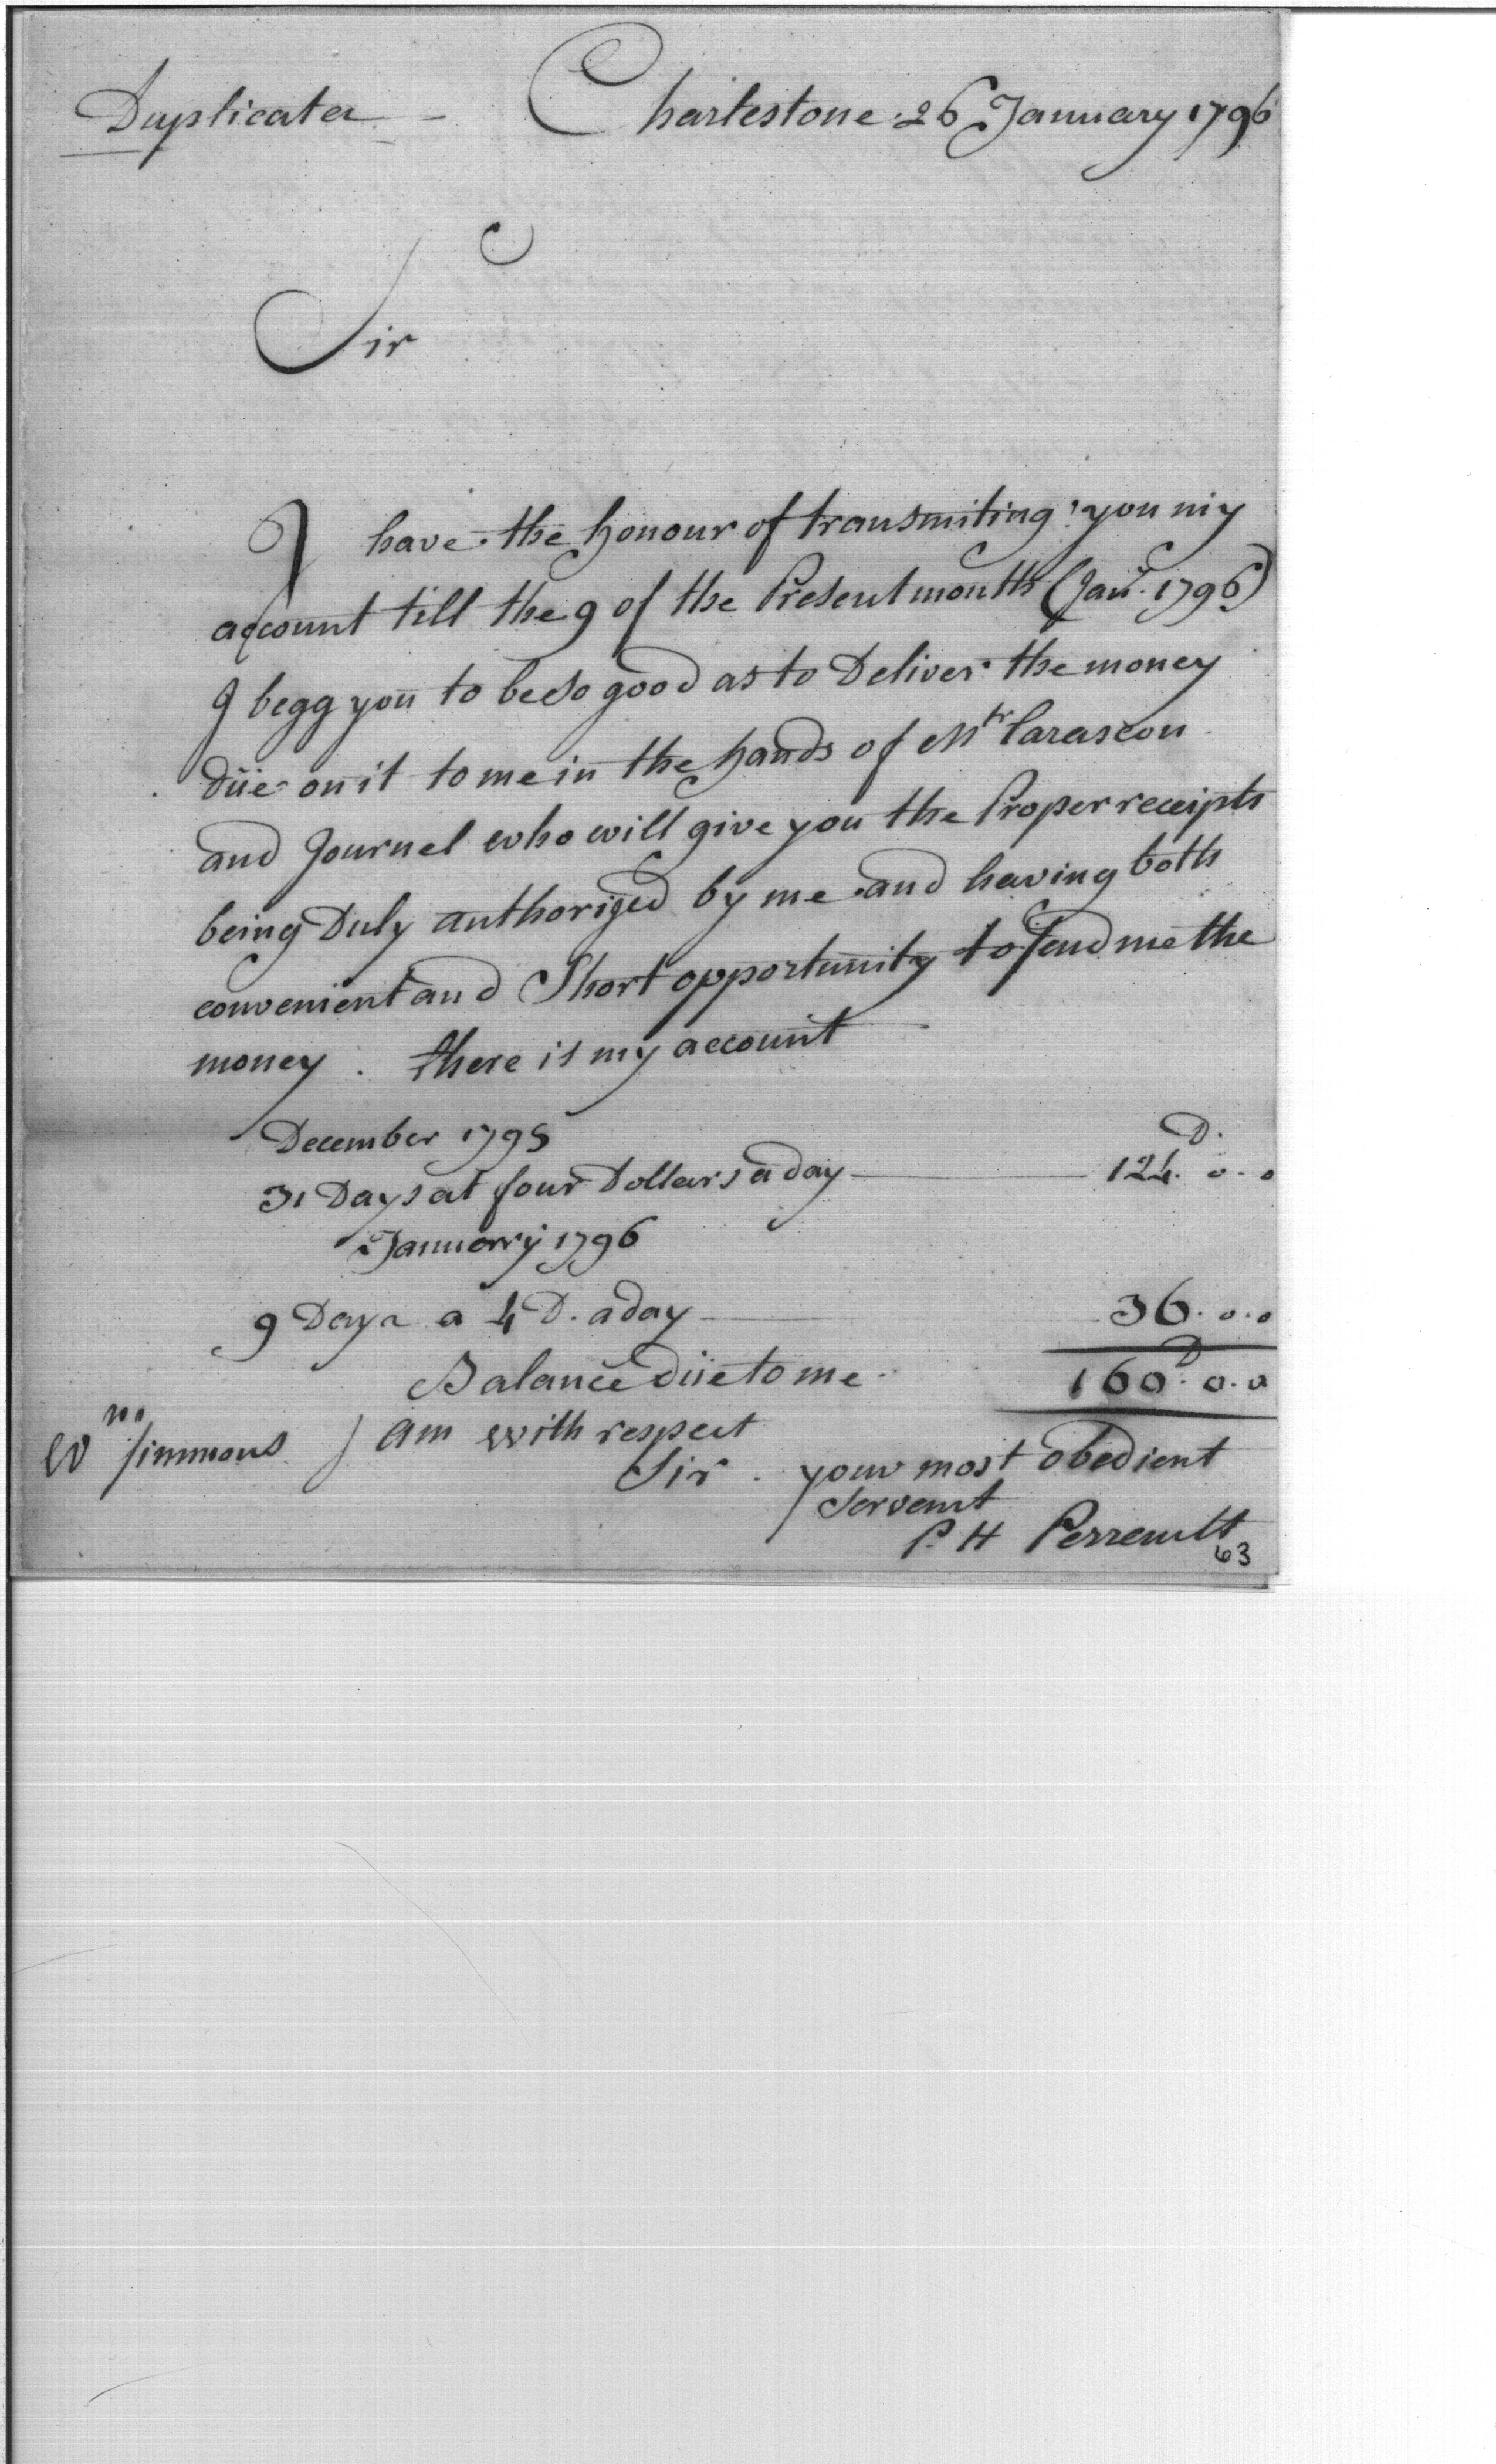 Duplicata - Charlestone 26 January 1796
Sir
I have the honour of transmiting you my
account till the 9 of the Present month (Jany. 1796)
I begg you to be so good as to Deliver the money
düe on it to me in the hands of Mr Tarascon
and Journel who will give you the Proper receipts
being Duly authorized by me and having both
convenient and Short opportunity to send me the
money. there is my account
December 1795 D.
31 Days at four Dollars a day 124. 0. 0
January 1796
9 Days a 4 D. a day 36. 0. 0
Balance düe to me 160 D. 0. 0
Wm Simmons I am with respect
Sir. your most obedient
Servent
P. H Perrault
63